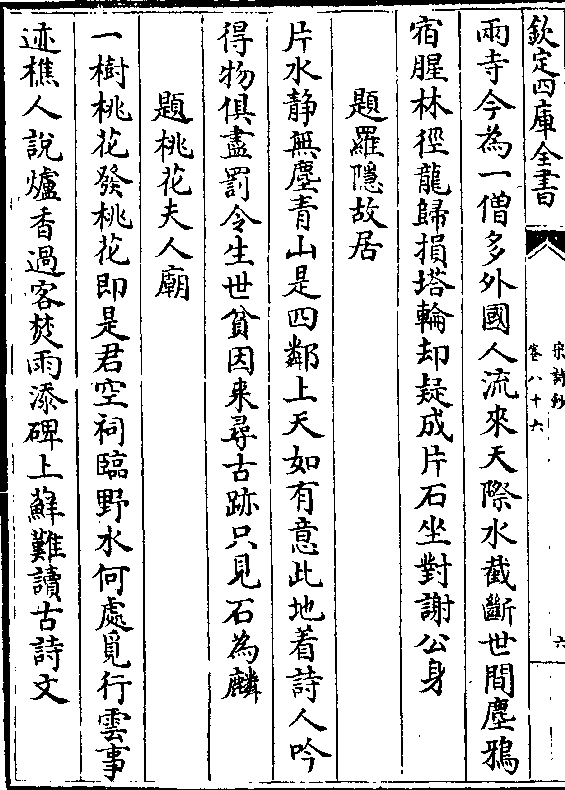 欽定四庫全書
宋詩鈔
卷八十六
六
雨寺今為一僧多外國人流來天際水截斷世間塵鴉
宿腥林徑龍歸損塔輪却疑成片石坐對謝公身
題羅隱故居
片水静無塵青山是四鄰上天如有意此地着詩人吟
得物俱盡罰令生世貧因来尋古跡只見石為麟
題桃花夫人廟
一樹桃花發桃花即是君空祠臨野水何處覓行雲事
迹樵人說爐香過客焚雨添碑上蘚難讀古詩文